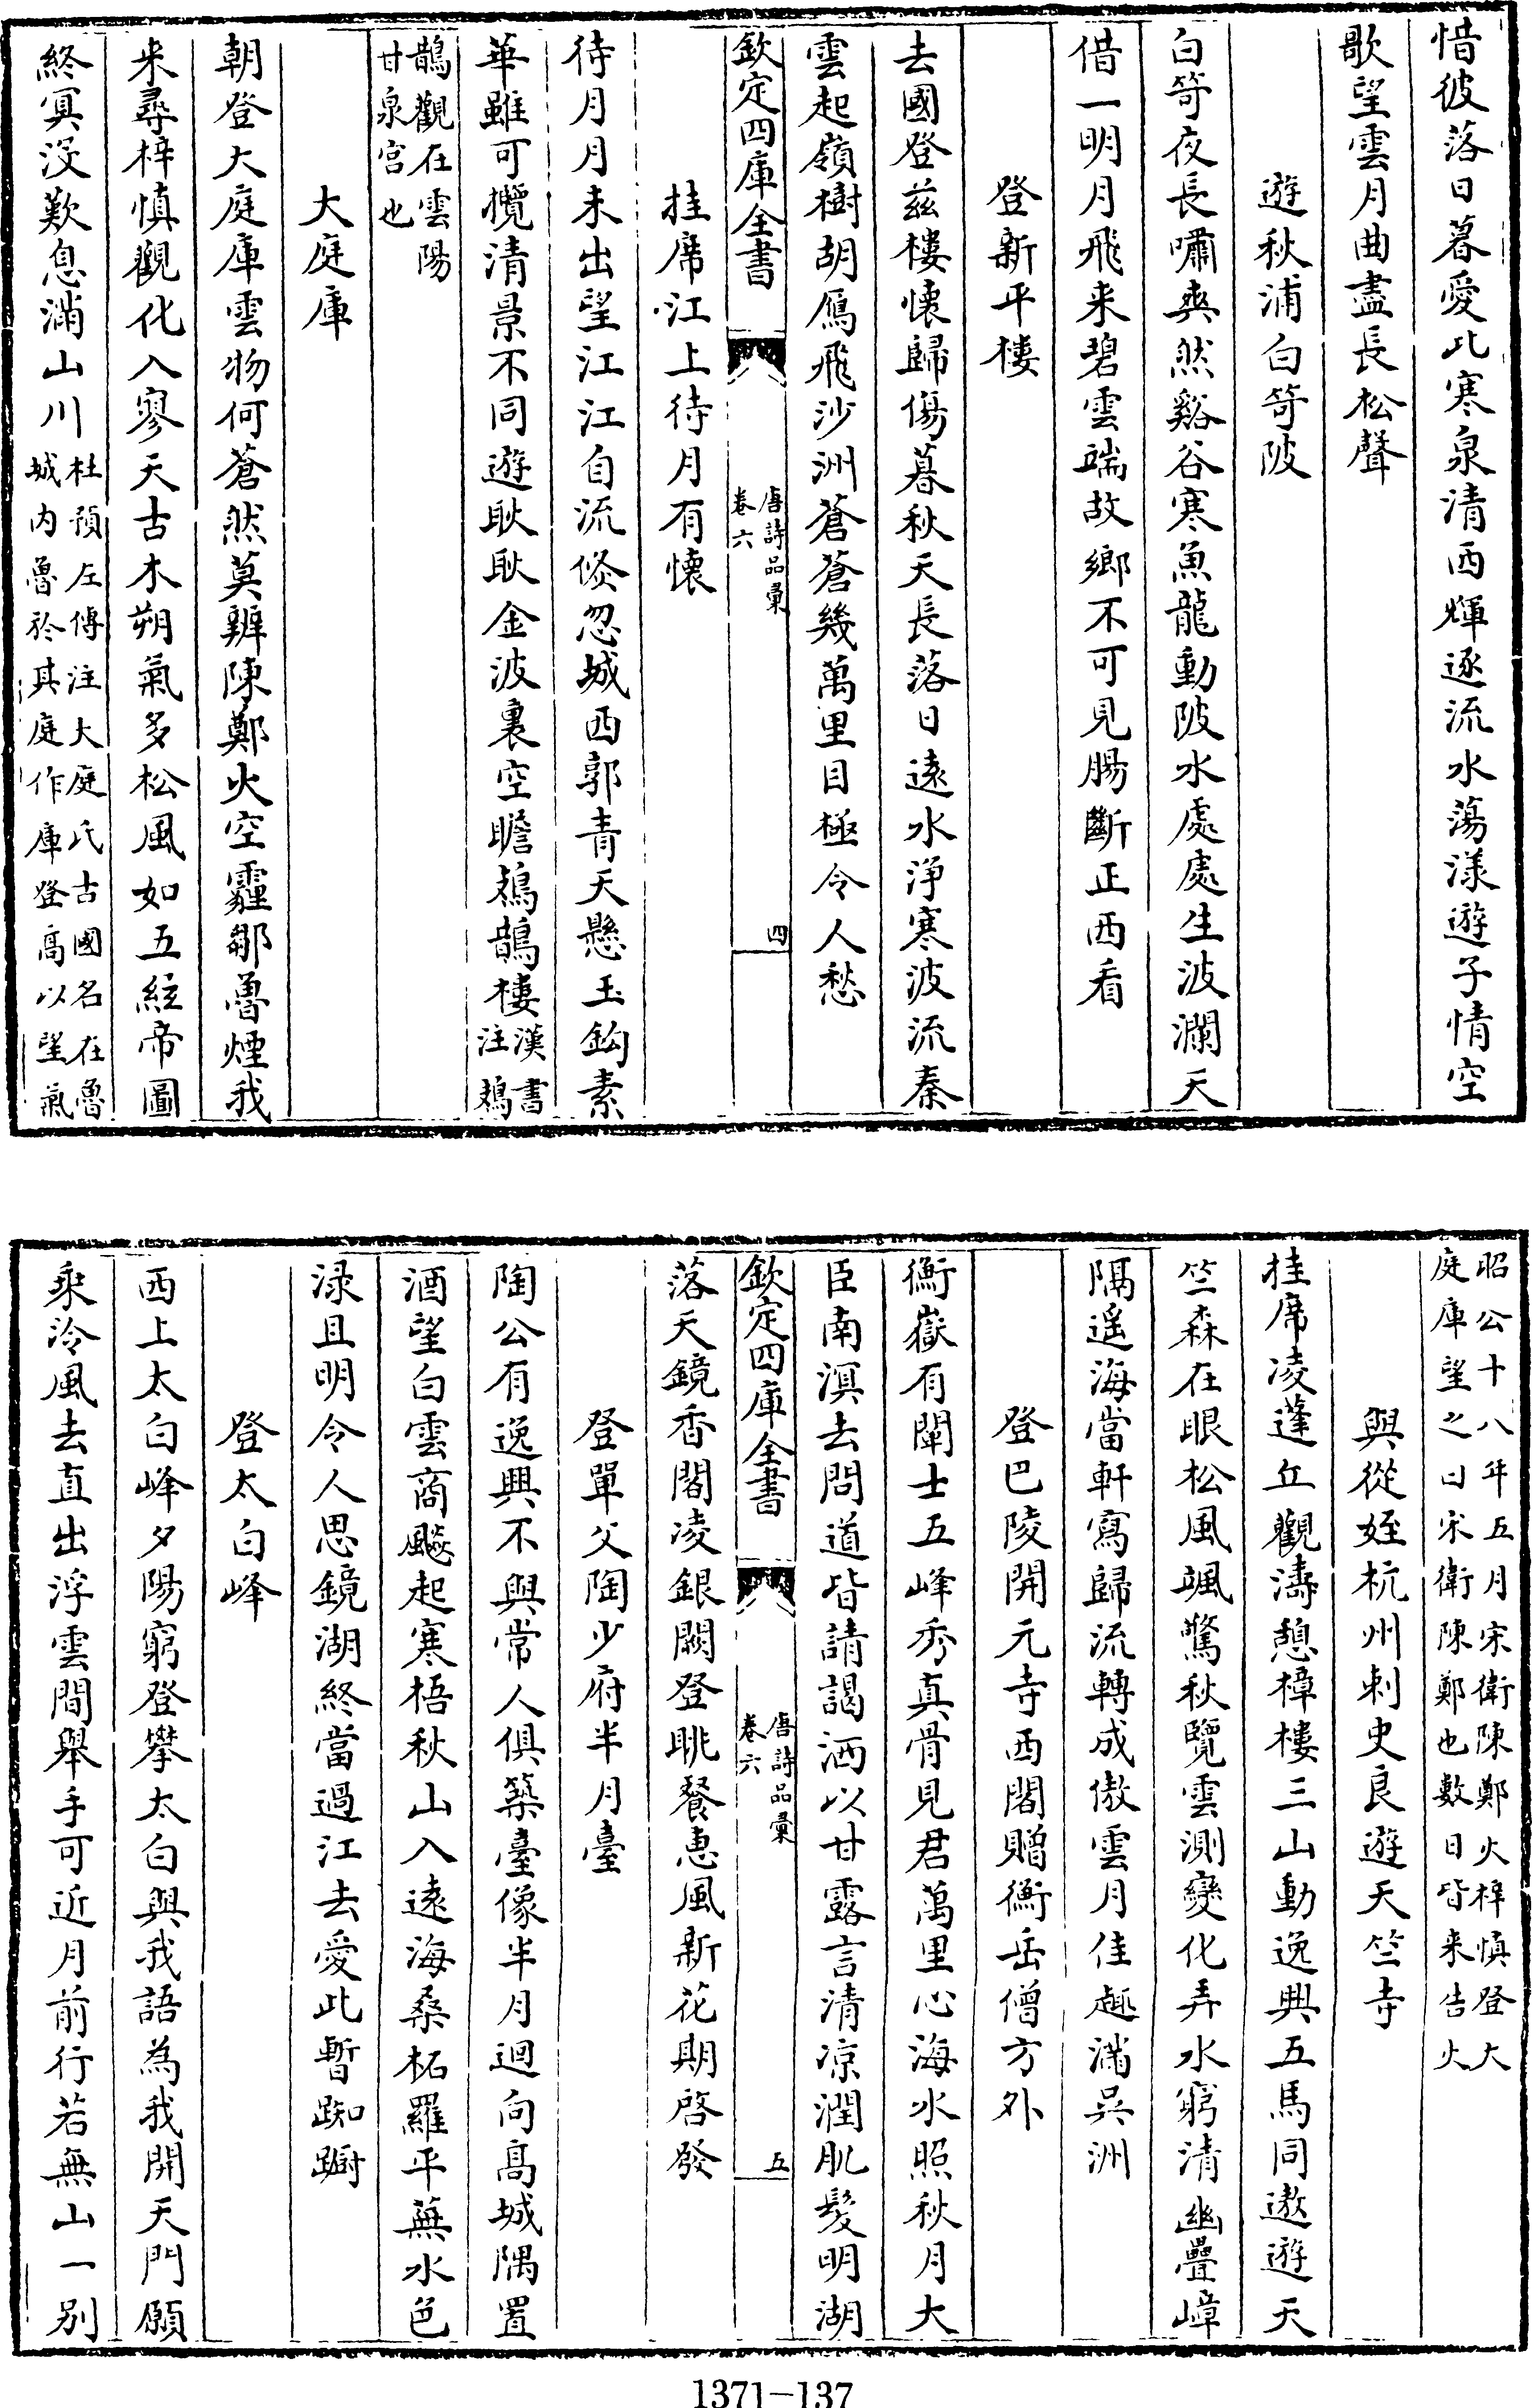 惜彼落日暮愛此寒泉清西輝逐流水蕩漾遊子情空
歌望雲月曲盡長松聲
遊秋浦白笴陂
白笴夜長嘯爽然谿谷寒魚龍動陂水處處生波瀾天
借一明月飛来碧雲端故鄉不可見腸斷正西看
登新平樓
去國登兹樓懐歸傷暮秋天長落日遠水浄寒波流秦
雲起嶺樹胡鴈飛沙洲蒼蒼幾萬里目極令人愁
欽定四庫全書
唐詩品彚
卷六
四
挂席江上待月有懐
待月月未出望江江自流倐忽城西郭青天懸玉鈎素
華雖可攬清景不同遊耿耿金波裏空瞻鳷鵲樓漢書
注鳷
鵲觀在雲陽
甘泉宫也
大庭庫
朝登大庭庫雲物何蒼然莫辨陳鄭火空霾鄒魯煙我
来尋梓慎觀化入寥天古木朔氣多松風如五絃帝圖
終冥没歎息滿山川杜預左傳注大庭氏古國名在魯
城内魯於其庭作庫登髙以望氣
昭公十八年五月宋衛陳鄭火梓慎登大
庭庫望之曰宋衛陳鄭也數日皆来告火
與從姪杭州刺史良遊天竺寺
挂席凌蓬丘觀濤憩樟樓三山動逸興五馬同遨遊天
竺森在眼松風颯驚秋覽雲測變化弄水窮清幽疊嶂
隔遥海當軒寫歸流轉成傲雲月佳趣滿吳洲
登巴陵開元寺西閣贈衡岳僧方外
衡嶽有闡士五峰秀真骨見君萬里心海水照秋月大
臣南溟去問道皆請謁洒以甘露言清凉潤肌髮明湖
欽定四庫全書
唐詩品彚
卷六
五
落天鏡香閣凌銀闕登眺餐惠風新花期啓發
登單父陶少府半月臺
陶公有逸興不與常人俱築臺像半月迴向髙城隅置
酒望白雲商飈起寒梧秋山入遠海桑柘羅平蕪水色
渌且明令人思鏡湖終當過江去愛此暫踟蹰
登太白峰
西上太白峰夕陽窮登攀太白與我語為我開天門願
乘泠風去直出浮雲間舉手可近月前行若無山一别
1371-137